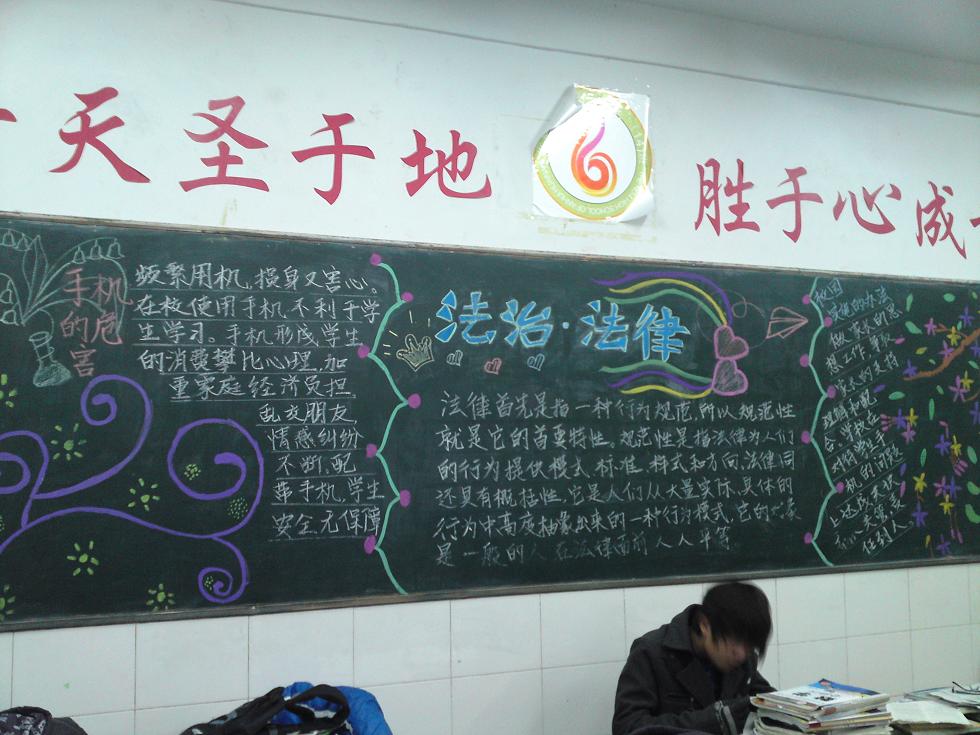 天圣于地
胜于心成
手机
的危
害
频繁用机,损身又害心。
在校使用手机不利于学
生学习。手机形成学生
的消费攀比心理,加
重家庭经济负担,
乱交朋友,
情感纠纷
不断,配
带手机,学生
安全无保障
法治·法律
法律首先是指一种行为规范,所以规范性
就是它的首要特性。规范性是指法律为人们
的行为提供模式、标准、样式和方向。法律同
还具有概括性,它是人们从大量实际、具体的
行为中高度抽象出来的一种行为模式,它的对象
是一般的人,在法律面前人人平等
校园
做事大的思
想工作,争取
家长的支持
理解和配
合。学校在
对待学生手
机的问题
任到人。